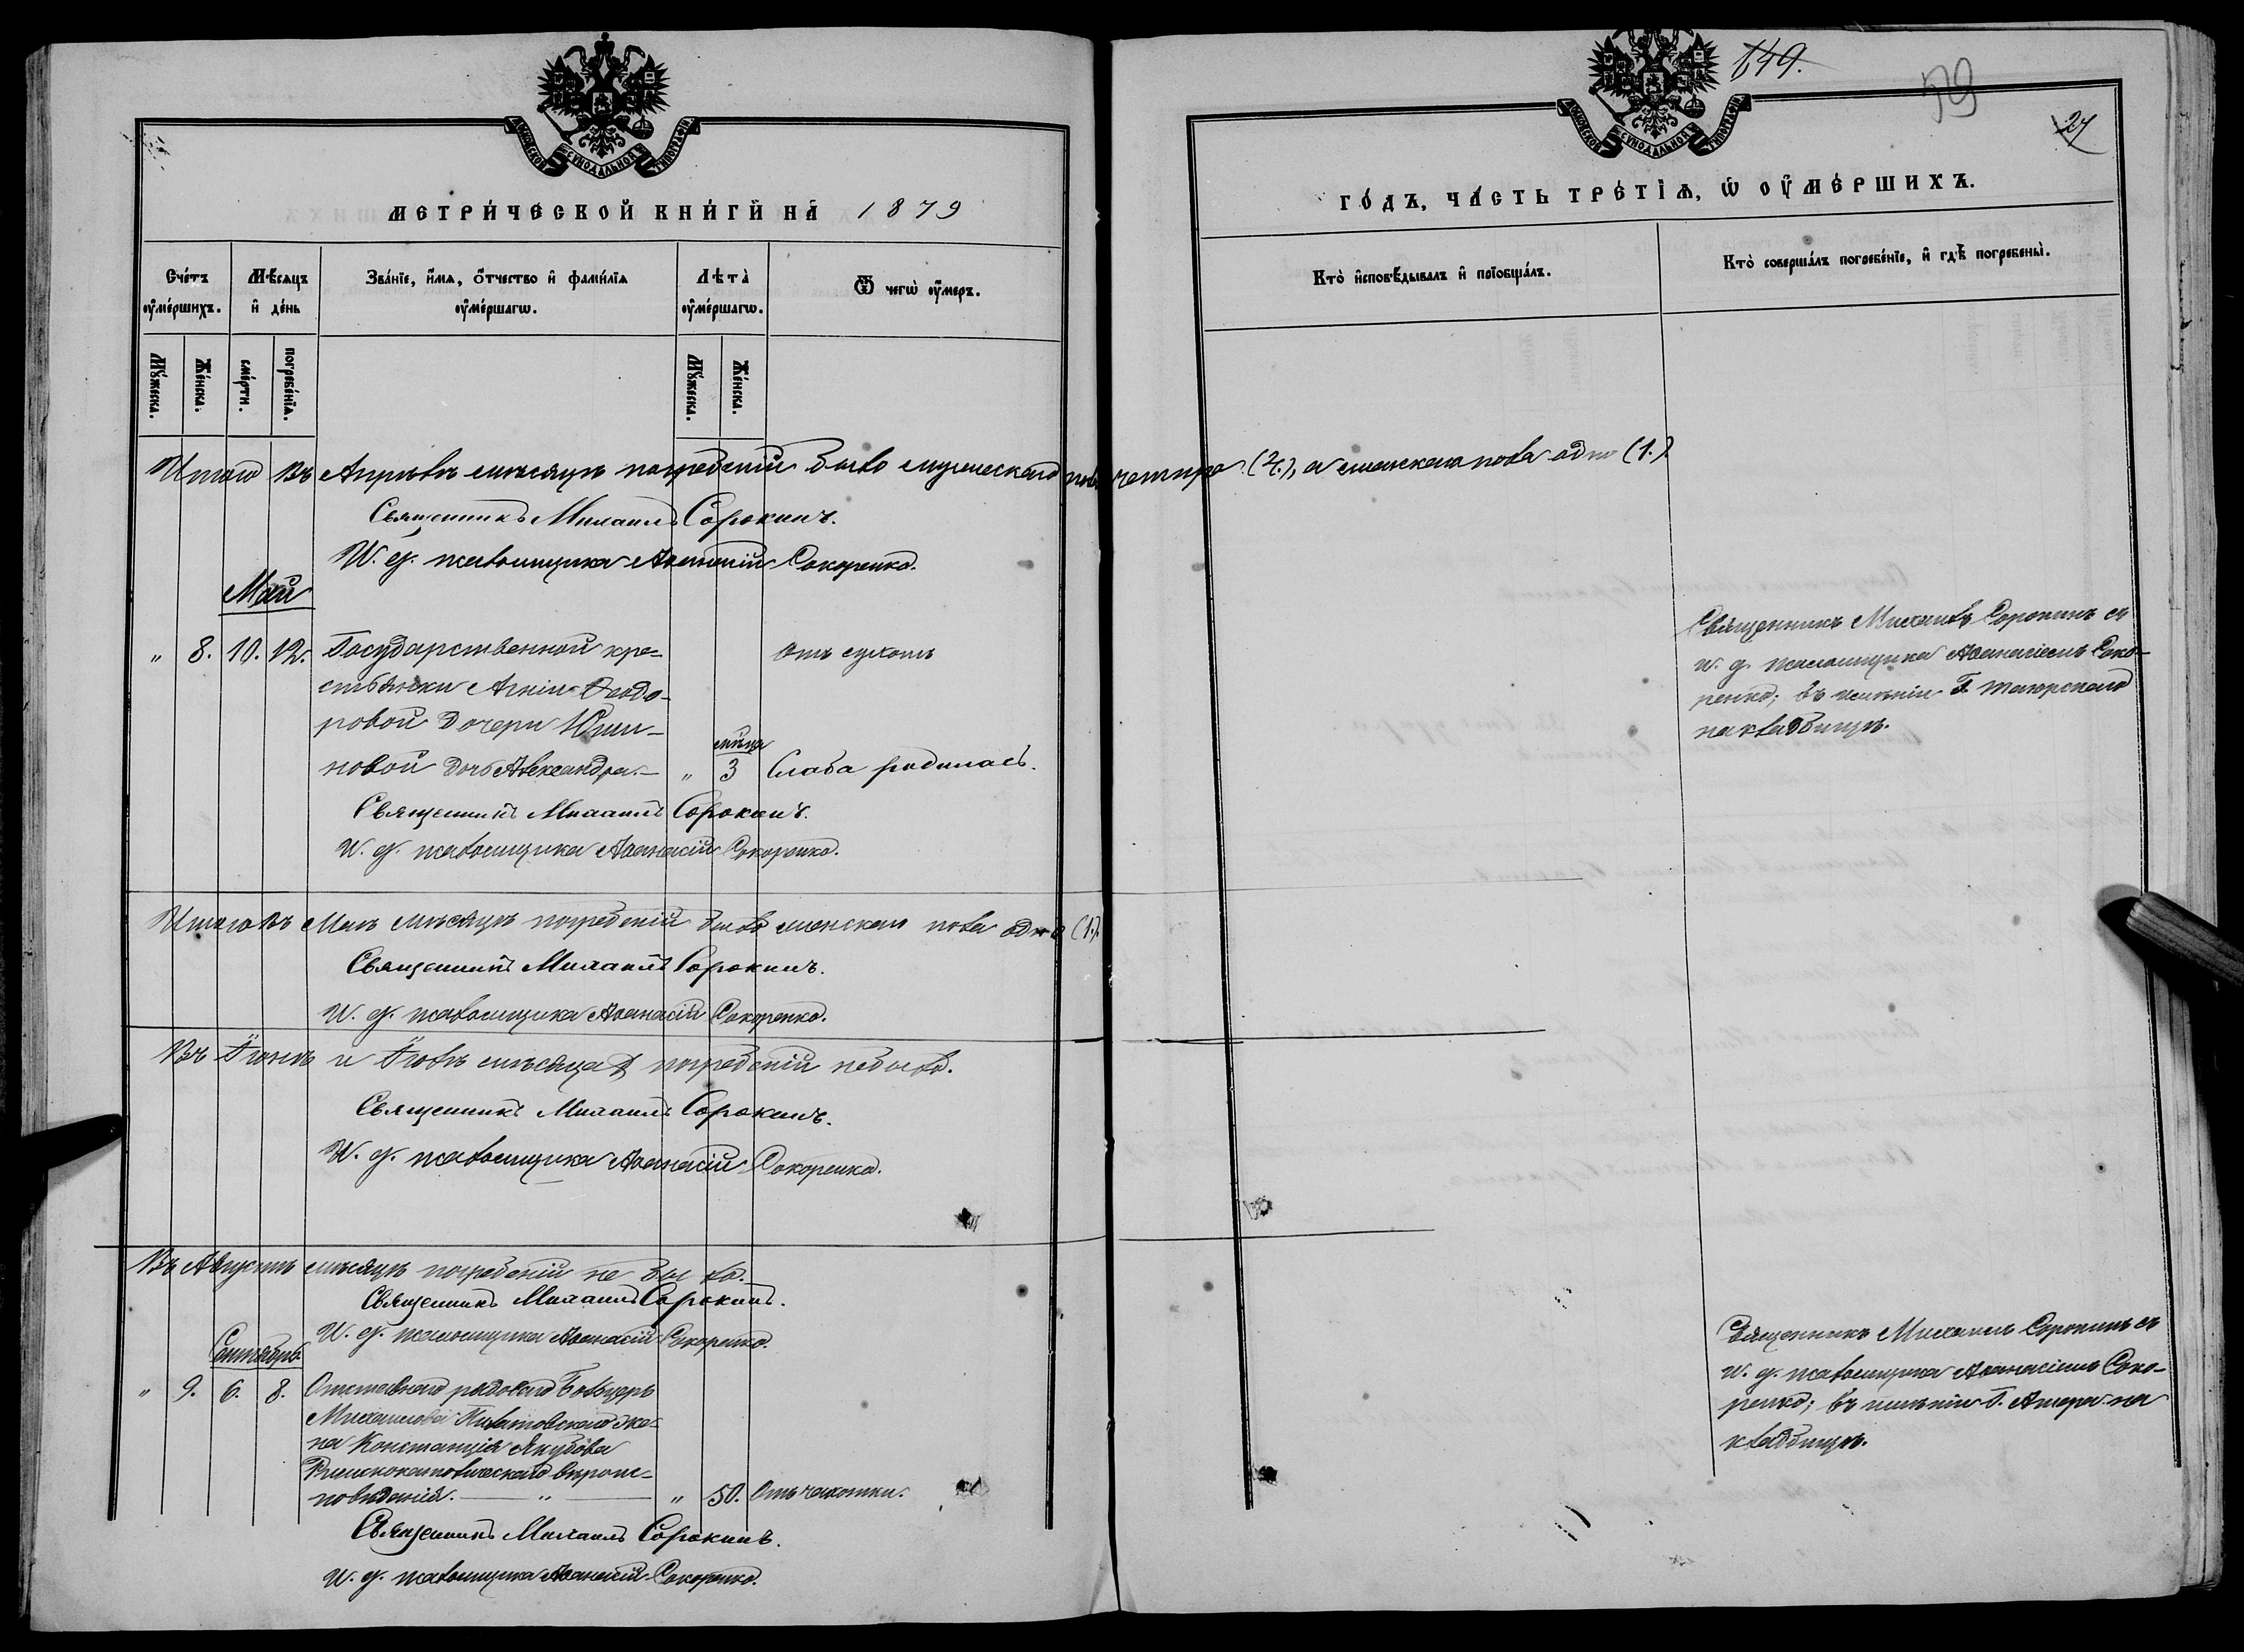 МОСКОВСКОЙ СѴНОДАЛЬНОЙ ТИПОГРАФІИ
МЕТРИ́ЧЕСКОЙ КНИ́ГИ НА̀ 1879
Сче́тъ оу҆ме́ршихъ.
Мѣ́сяцъ и҆ де́нь
Зва́нїе, и҆́мѧ, ѻ҆́тчество и҆ фами́лїѧ оу҆ме́ршагѡ.
Лѣ́та̀ оу҆ме́ршагѡ.
Ѿ чегѡ̀ оу҆́меръ.
Мꙋ́жеска.
Же́нска.
сме́рти.
погребе́нїѧ.
Мꙋ́жеска.
Же́нска.
Итого въ Апрѣлѣ мѣсяцѣ погребеній было мужескаго пола четыре (4.), а женскаго пола одно (1.)
Священникъ Михаилъ Сорокинъ.
И. д. псаломщика Аѳанасій Сокоренко.
Май
" 8. 10. 12. Государственной кре-
стьянки Агніи Ѳеодо-
ровой дочери Юши-
новой дочь Александра.
" 3
Слаба родилась.
Священникъ Михаилъ Сорокинъ.
И. д. псаломщика Аѳанасій Сокоренко.
Итого въ Маѣ мѣсяцѣ погребеній было женскаго пола одно (1.).
Священникъ Михаилъ Сорокинъ.
И. д. псаломщика Аѳанасій Сокоренко.
Въ Іюнѣ и Іюлѣ мѣсяцахъ погребеній небыло.
Священникъ Михаилъ Сорокинъ.
И. д. псаломщика Аѳанасій Сокоренко.
Въ Августѣ мѣсяцѣ погребеній не было.
Священникъ Михаилъ Сорокинъ.
И. д. псаломщика Аѳанасій Сокоренко.
Сентябрь
" 9. 6. 8. Отставнаго рядоваго
Михаилова же-
на Констанція Якубова
Римскокатолическаго вѣроис-
повѣданія. — " —
" 50. Отъ чахотки.
Священникъ Михаилъ Сорокинъ.
И. д. псаломщика Аѳанасій Сокоренко.
МОСКОВСКОЙ СѴНОДАЛЬНОЙ ТИПОГРАФІИ
149.
59
27
ГО́ДЪ, ЧА́СТЬ ТРЕ́ТЇѦ, Ѡ҆ ОУ҆МЕ́РШИХЪ.
Кто̀ и҆сповѣ́дывалъ и҆ прїобща́лъ.
Кто̀ соверша́лъ погребе́нїе, и҆ гдѣ̀ погребены̀.
Священникъ Михаилъ Сорокинъ съ
и. д. псаломщика Аѳанасіемъ Соко-
ренко; въ имѣніи Г.
на кладбищѣ.
Священникъ Михаилъ Сорокинъ съ
и. д. псаломщика Аѳанасіемъ Соко-
ренко; въ имѣніи Г. на
кладбищѣ.